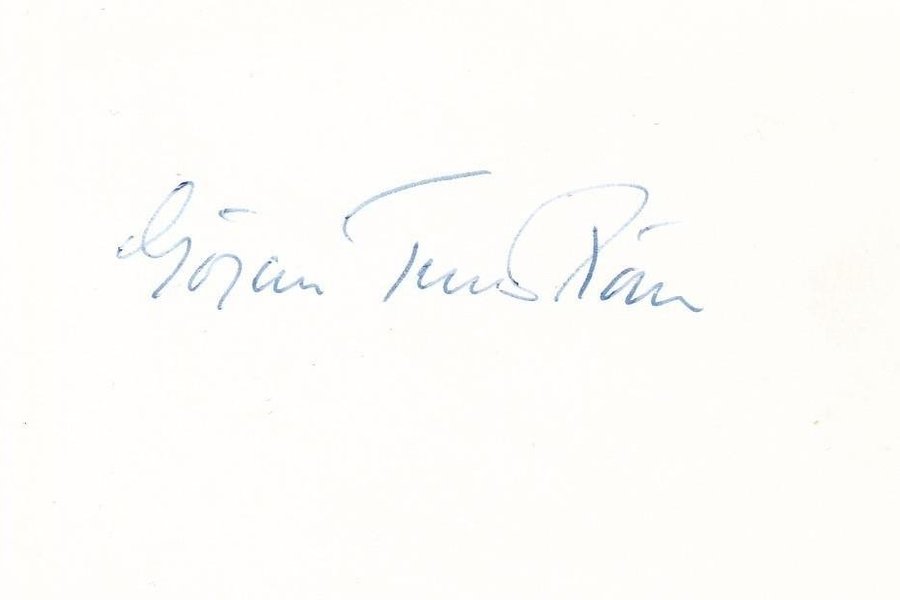 Göran Tunström